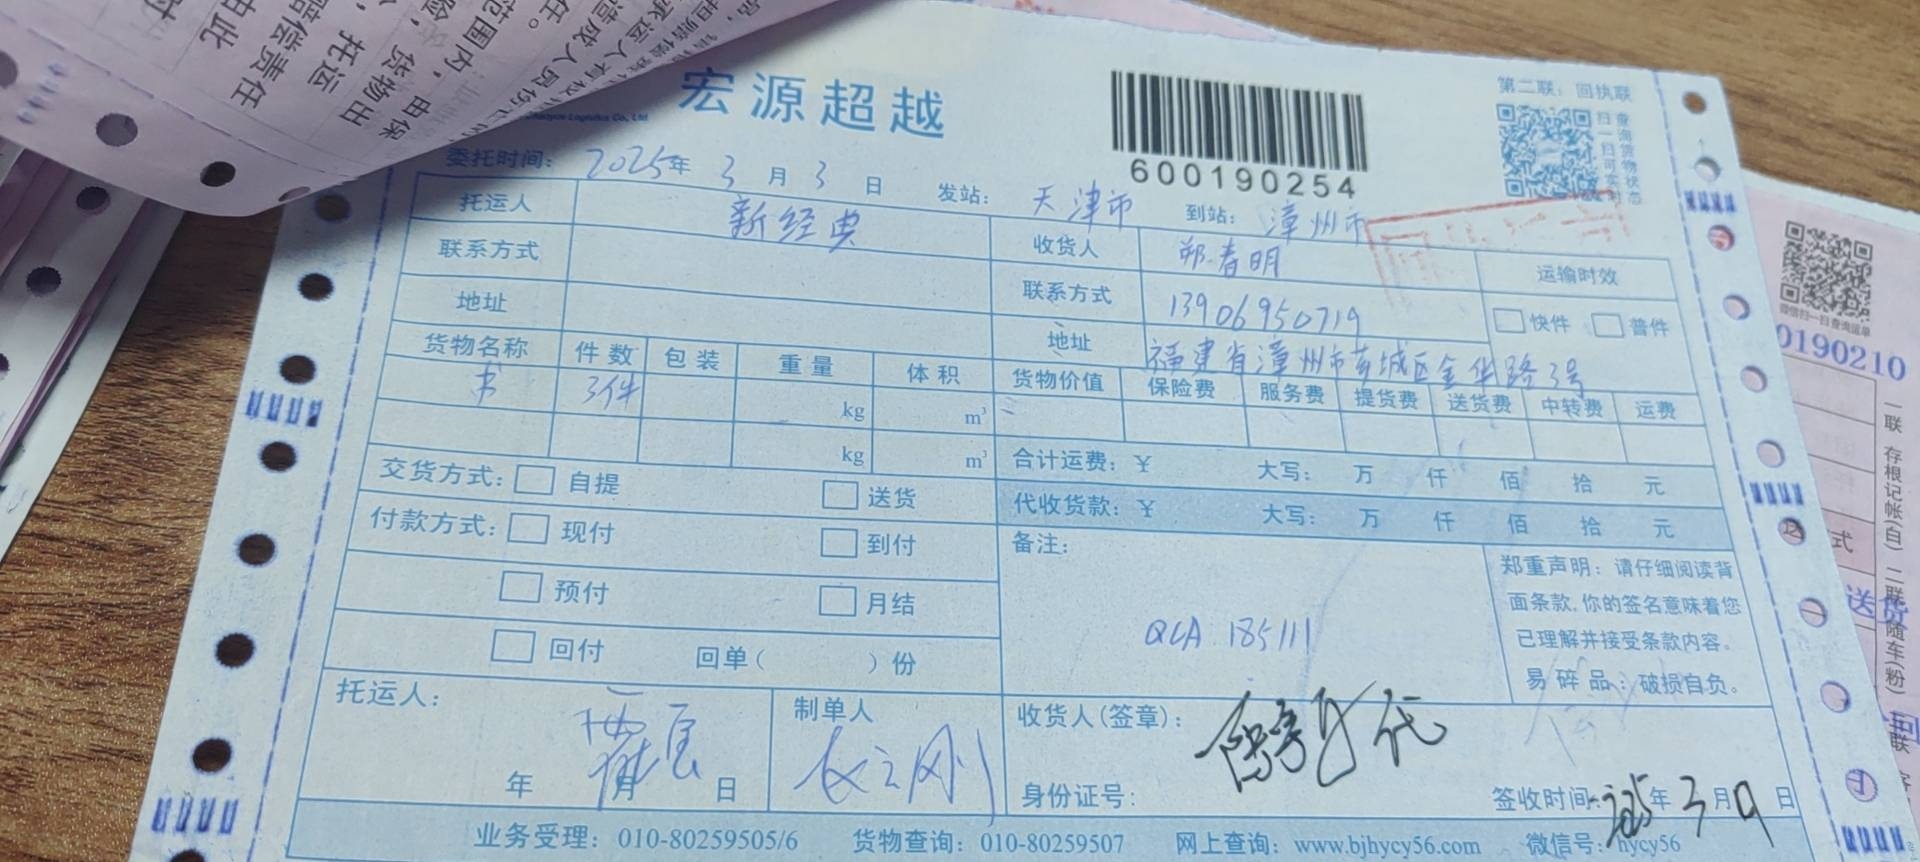 宏源超越
600190254
第二联：回执联
扫一扫可实时
查询货物状态
委托时间：2025年 3 月 3 日 发站：天津市 到站：漳州市
托运人 新经典 收货人 郑春明 运输时效
联系方式 联系方式 13906950719 快件 普件
地址 地址 福建省漳州市芗城区金华路3号
货物名称 件数 包装 重量 体积 货物价值 保险费 服务费 提货费 送货费 中转费 运费
书 3件 kg m³
kg m³ 合计运费：¥ 大写： 万 仟 佰 拾 元
交货方式： 自提 送货 代收货款：¥ 大写： 万 仟 佰 拾 元
付款方式： 现付 到付 备注：
预付 月结 QCA 185111
回付 回单（ ）份
郑重声明：请仔细阅读背
面条款，你的签名意味着您
已理解并接受条款内容。
易碎品：破损自负。
托运人： 制单人 收货人(签章)：
年 月 日 身份证号： 签收时间：2025年 3月 9日
业务受理：010-80259505/6 货物查询：010-80259507 网上查询：www.bjhycy56.com 微信号：hycy56
微信扫一扫查询运单
0190210
一联 存根记帐(白) 二联 随车(粉)
送货